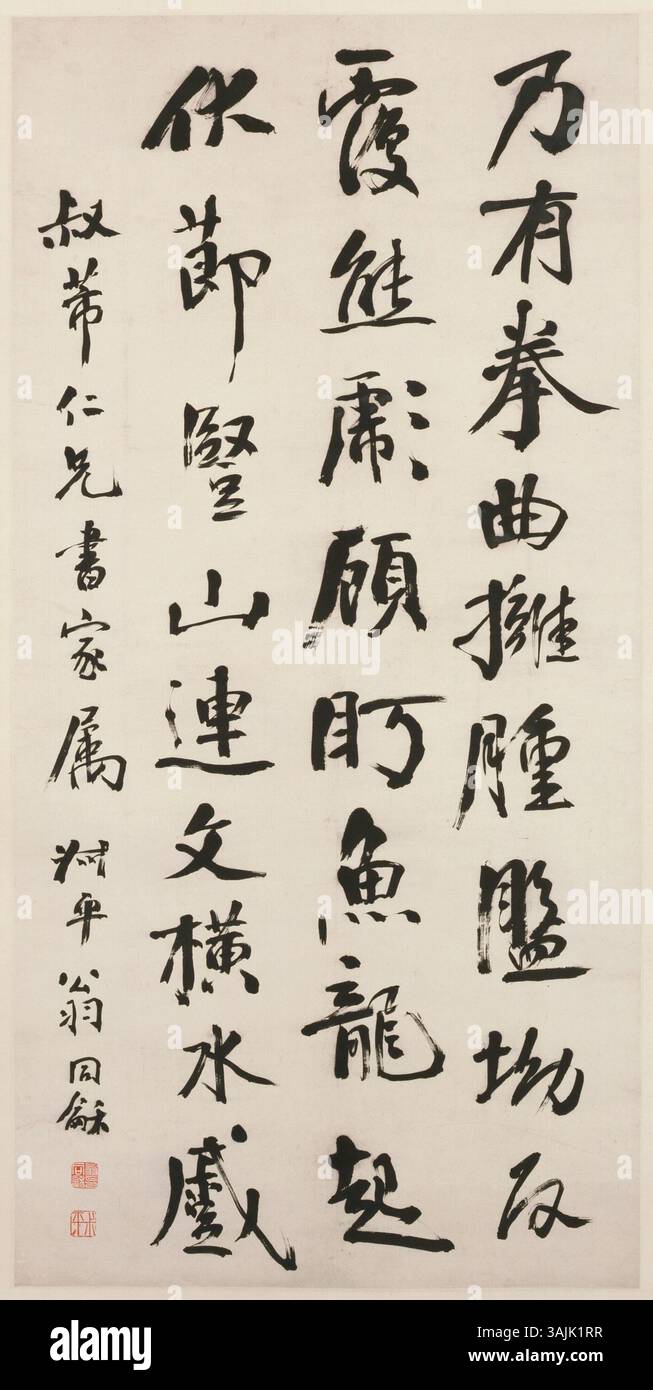 乃有拳曲擁腫盤坳反
覆熊彪顧眄魚龍起
伏莭豎山連文橫水蹙
叔芾仁兄書家属 叔平翁同龢
alamy
alamy
Image ID: 3AJK1RR
www.alamy.com